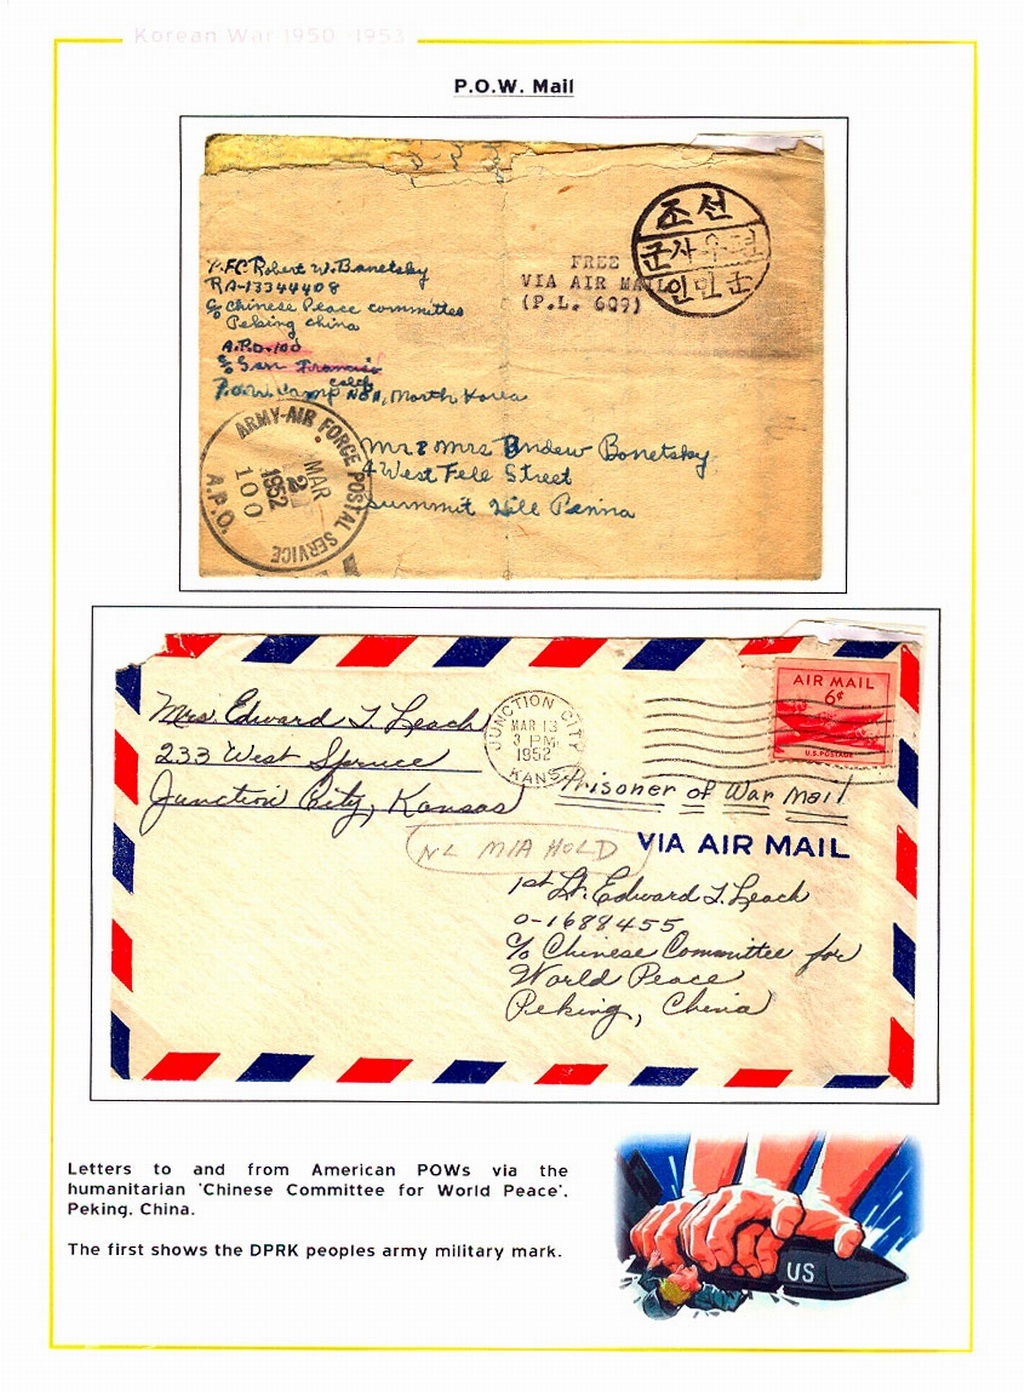 Korean War 1950 -1953
P.O.W. Mail
P.F.C. Robert W. Bonetsky
RA-13344408
c/o Chinese Peace committes
Peking china
A.P.O. 100
c/o San Francisco
Calif
P.O.W. Camp No 1, North Korea
FREE
VIA AIR MAIL
(P.L. 609)
조선
군사우편
인민군
ARMY-AIR FORCE POSTAL SERVICE
MAR
2
1952
100
A.P.O.
Mr & Mrs Andew Bonetsky
4 West Fele Street
Summit Hill Penna
Mrs. Edward T. Leach
233 West Spruce
Junction City, Kansas
JUNCTION CITY
MAR 13
3 PM
1952
KANS
AIR MAIL
6¢
U.S. POSTAGE
Prisoner of War Mail
NL MIA HOLD
VIA AIR MAIL
1st Lt. Edward T. Leach
O-1688455
c/o Chinese Committee for
World Peace
Peking, China
Letters to and from American POWs via the
humanitarian 'Chinese Committee for World Peace'.
Peking. China.
The first shows the DPRK peoples army military mark.
US